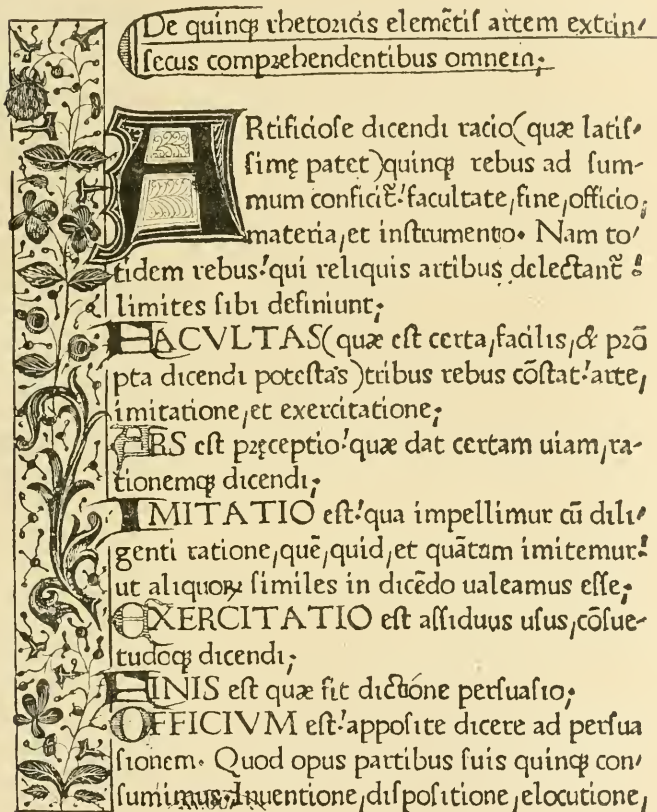 De quinqꝫ rhetoricis elemētiſ artem extrin⸗
ſecus comprehendentibus omnem;
ARtificioſe dicendi racio(quæ latiſ⸗
ſimę patet)quinqꝫ rebus ad ſum-
mum conficit̃:facultate,fine,officio,
materia,et inſtrumento. Nam to⸗
tidem rebus:qui reliquis artibus delectant̃:
limites ſibi definiunt;
FACVLTAS(quæ eſt certa,facilis,& prõ
pta dicendi poteſtas)tribus rebus cõſtat:arte,
imitatione,et exercitatione;
ARS eſt pręceptio:quæ dat certam uiam,ra-
tionemqꝫ dicendi;
IMITATIO eſt:qua impellimur cũ dili⸗
genti ratione,quẽ,quid,et quãtum imitemur:
ut aliquoꝝ ſimiles in dicẽdo ualeamus eſſe;
EXERCITATIO eſt aſſiduus uſus,cõſue-
tudoqꝫ dicendi;
FINIS eſt quæ fit dictióne perſuaſio;
OFFICIVM eſt:appoſite dicere ad perſua
ſionem. Quod opus partibus ſuis quinqꝫ con⸗
ſumimus:Inuentione,diſpoſitione,elocutione,